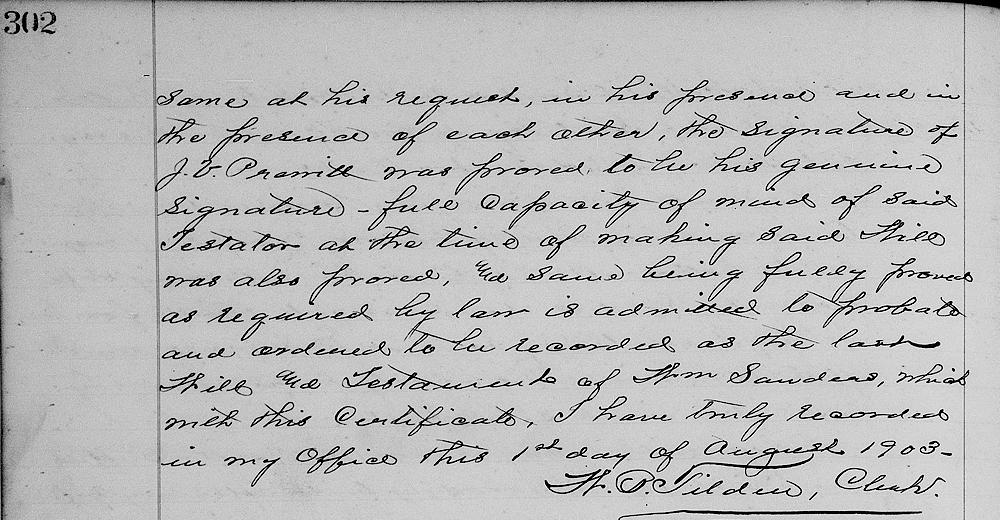 302
same at his request, in his presence and in
the presence of each other, the signature of
J. V. Prewitt was proved, to be his genuine
signature - full capacity of mind of said
Testator at the time of making said Will
was also proved, and same being fully proved
as required by law is admitted to probate
and ordered to be recorded as the last
Will and Testament of Wm Sanders, which
with this Certificate, I have truly recorded
in my Office this 1st day of August 1903-
W. P. Tilden, Clerk.